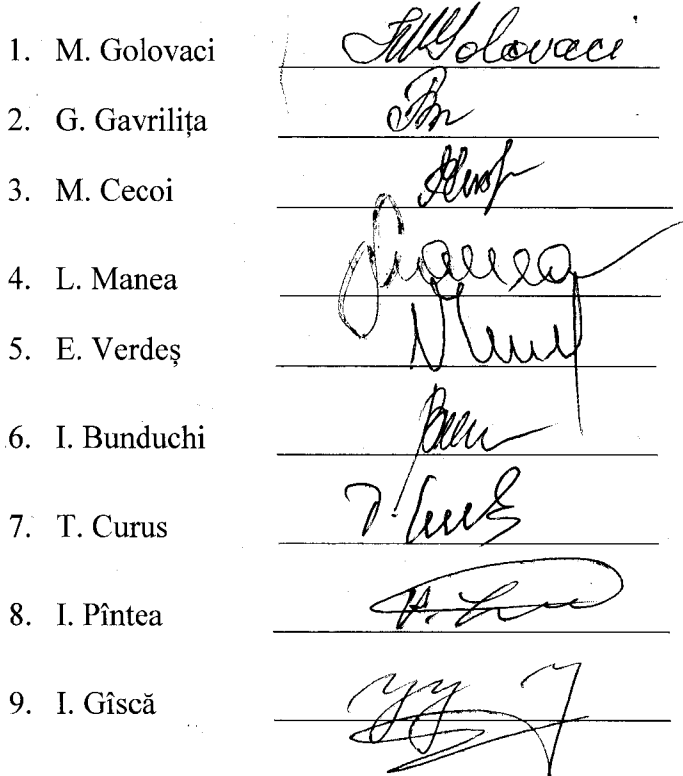 1. M. Golovaci Golovaci
2. G. Gavrilița
3. M. Cecoi
4. L. Manea Manea
5. E. Verdeș
6. I. Bunduchi
7. T. Curus
8. I. Pîntea
9. I. Gîscă